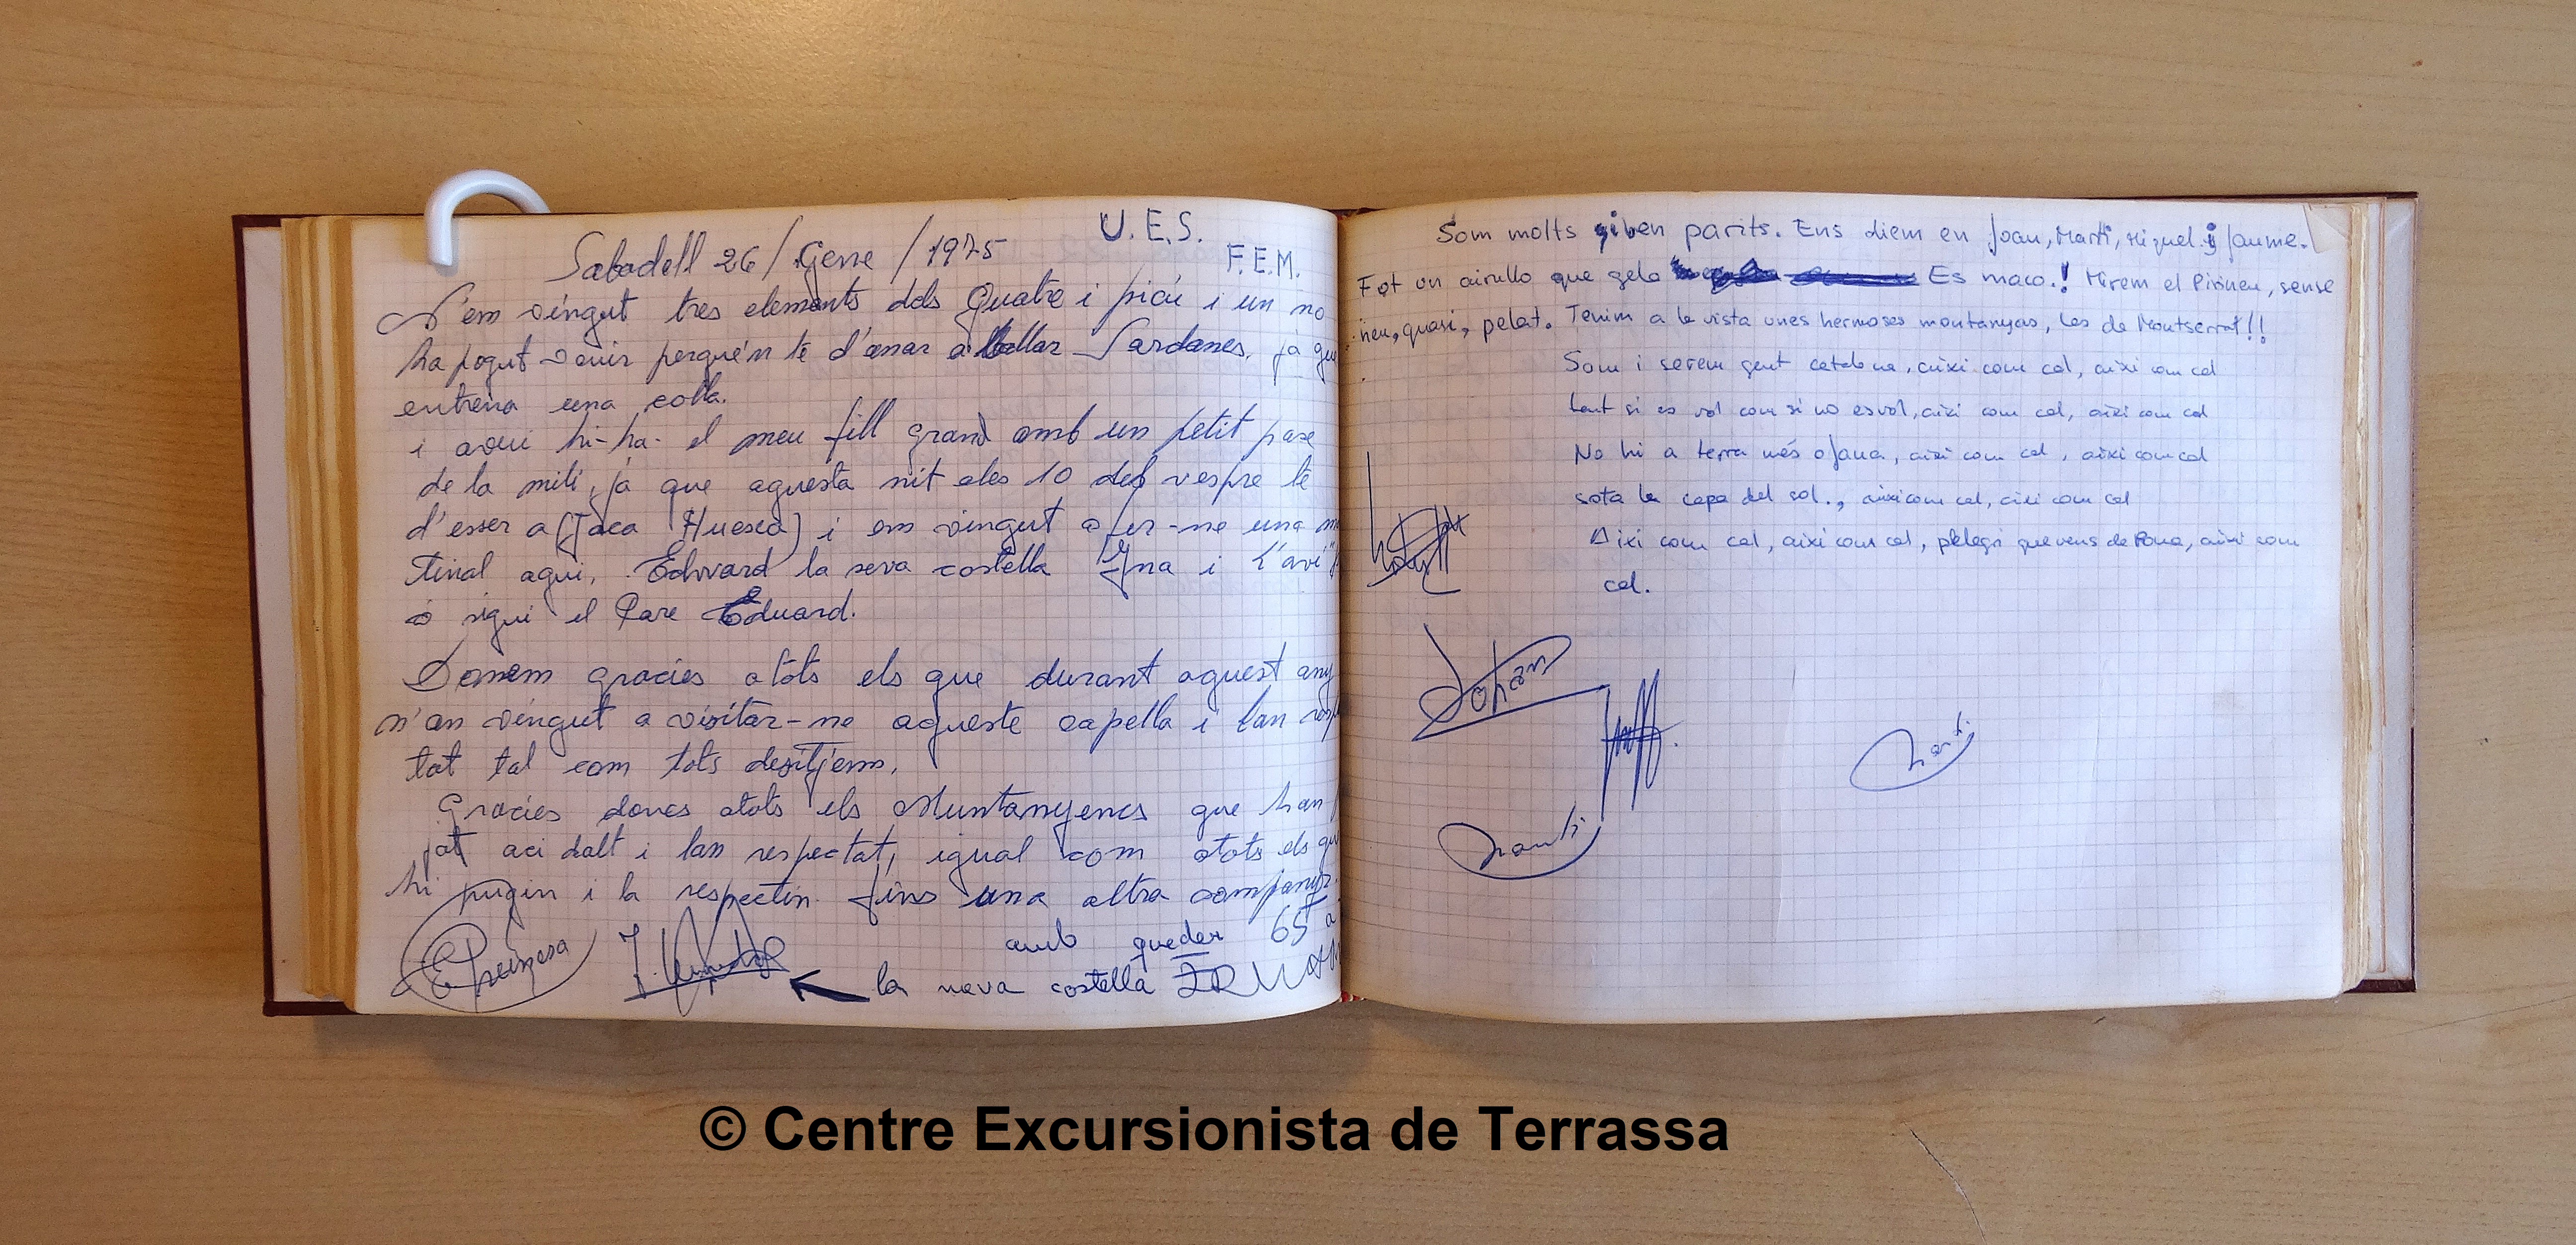 Sabadell 26 / Gene / 1975
U. E. S.
F. E. M.
N'em vingut tres elements dels Quatre i picú i un no
ha pogut venir perqué'n te d'anar a ballar Sardanes, ja que
entrena una colla.
i avui hi-ha- el meu fill gran amb un petit pase
de la mili, ja que aquesta nit ales 10 del vespre te
d'esser a (Jaca Huesca) i em vingut a fer-ne una ma
tinal aqui, Edward la seva costella Yna i l'avi"
o sigui el Pare Eduard.
Donem gracies a tots els que durant aquest any
n'an vingut a visitar-ne aqueste capella i lan respe
tat tal com tots desitjem,
Gracies doncs atots els Muntanyencs que han
jat aci dalt i lan respectat, igual com atots els que
hi pugin i la respectin. fins una altra companys.
amb quedar 65
la nova costella
Som molts i ben parits. Ens diem en Joan, Martí, Miquel i Jaume.
Fot un airullo que gela Es maco.! Mirem el Pirineu, sense
neu, quasi, pelat. Tenim a la vista unes hermoses montanyas, les de Montserrat!!
Som i serem gent catalana, aixi com cal, aixi com cal
tant si es vol com si no es vol, aixi com cal, aixi com cal
No hi a terra més ofana, aixi com cal, aixi com cal
sota la capa del sol., aixi com cal, aixi com cal
Aixi com cal, aixi com cal, pelegri que vens de Roma, aixi com
cal.
Johan
Marti
Marti
© Centre Excursionista de Terrassa